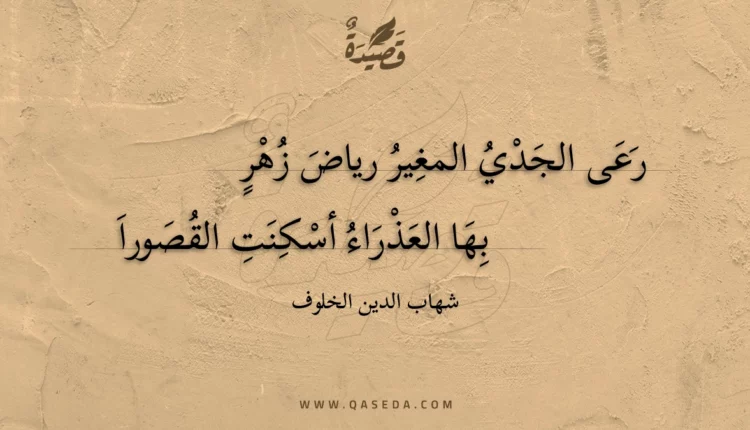 قَصِيدَةٌ
رَعَى الجَدْيُ المغِيرُ رياضَ زُهْرٍ
بِهَا العَذْرَاءُ أسْكِنَتِ القُصَوراَ
شهاب الدين الخلوف
WWW.QASEDA.COM